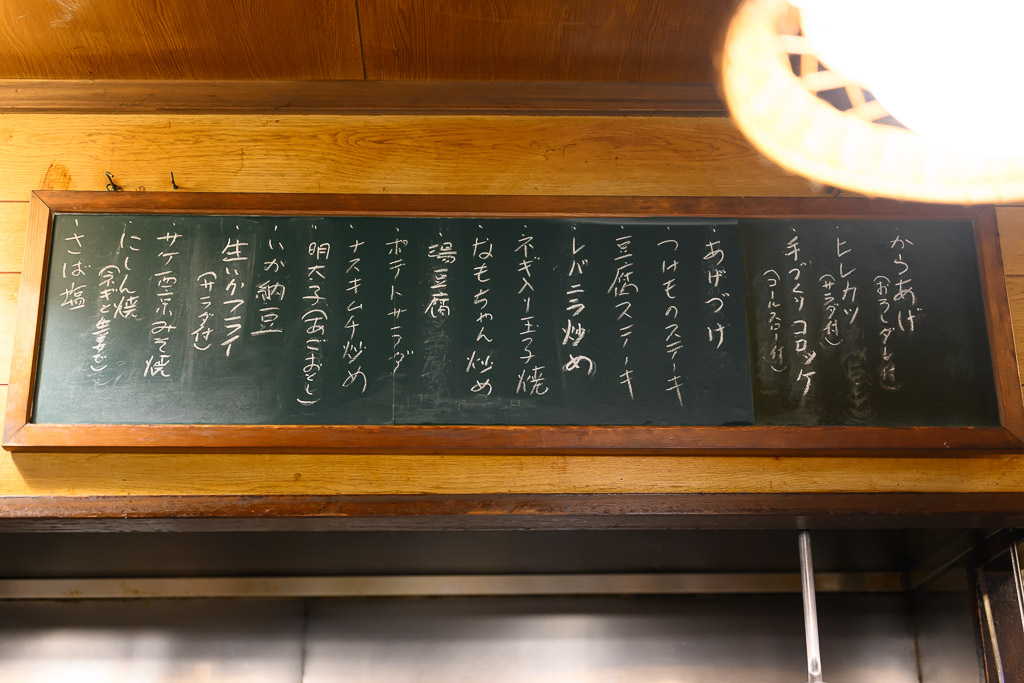 ・からあげ
(おろしダレ付)
・ヒレカツ
(サラダ付)
・手づくりコロッケ
(コールスロー付)
・あげづけ
・つけものステーキ
・豆腐ステーキ
・レバニラ炒め
・ネギ入り玉子焼
・なもちゃん炒め
・湯豆腐
・ポテトサラダ
・ナスキムチ炒め
・明太子(あごおとし)
・いか納豆
・生いかフライ
(サラダ付)
・サケ西京みそ焼
・にしん焼
・さば塩